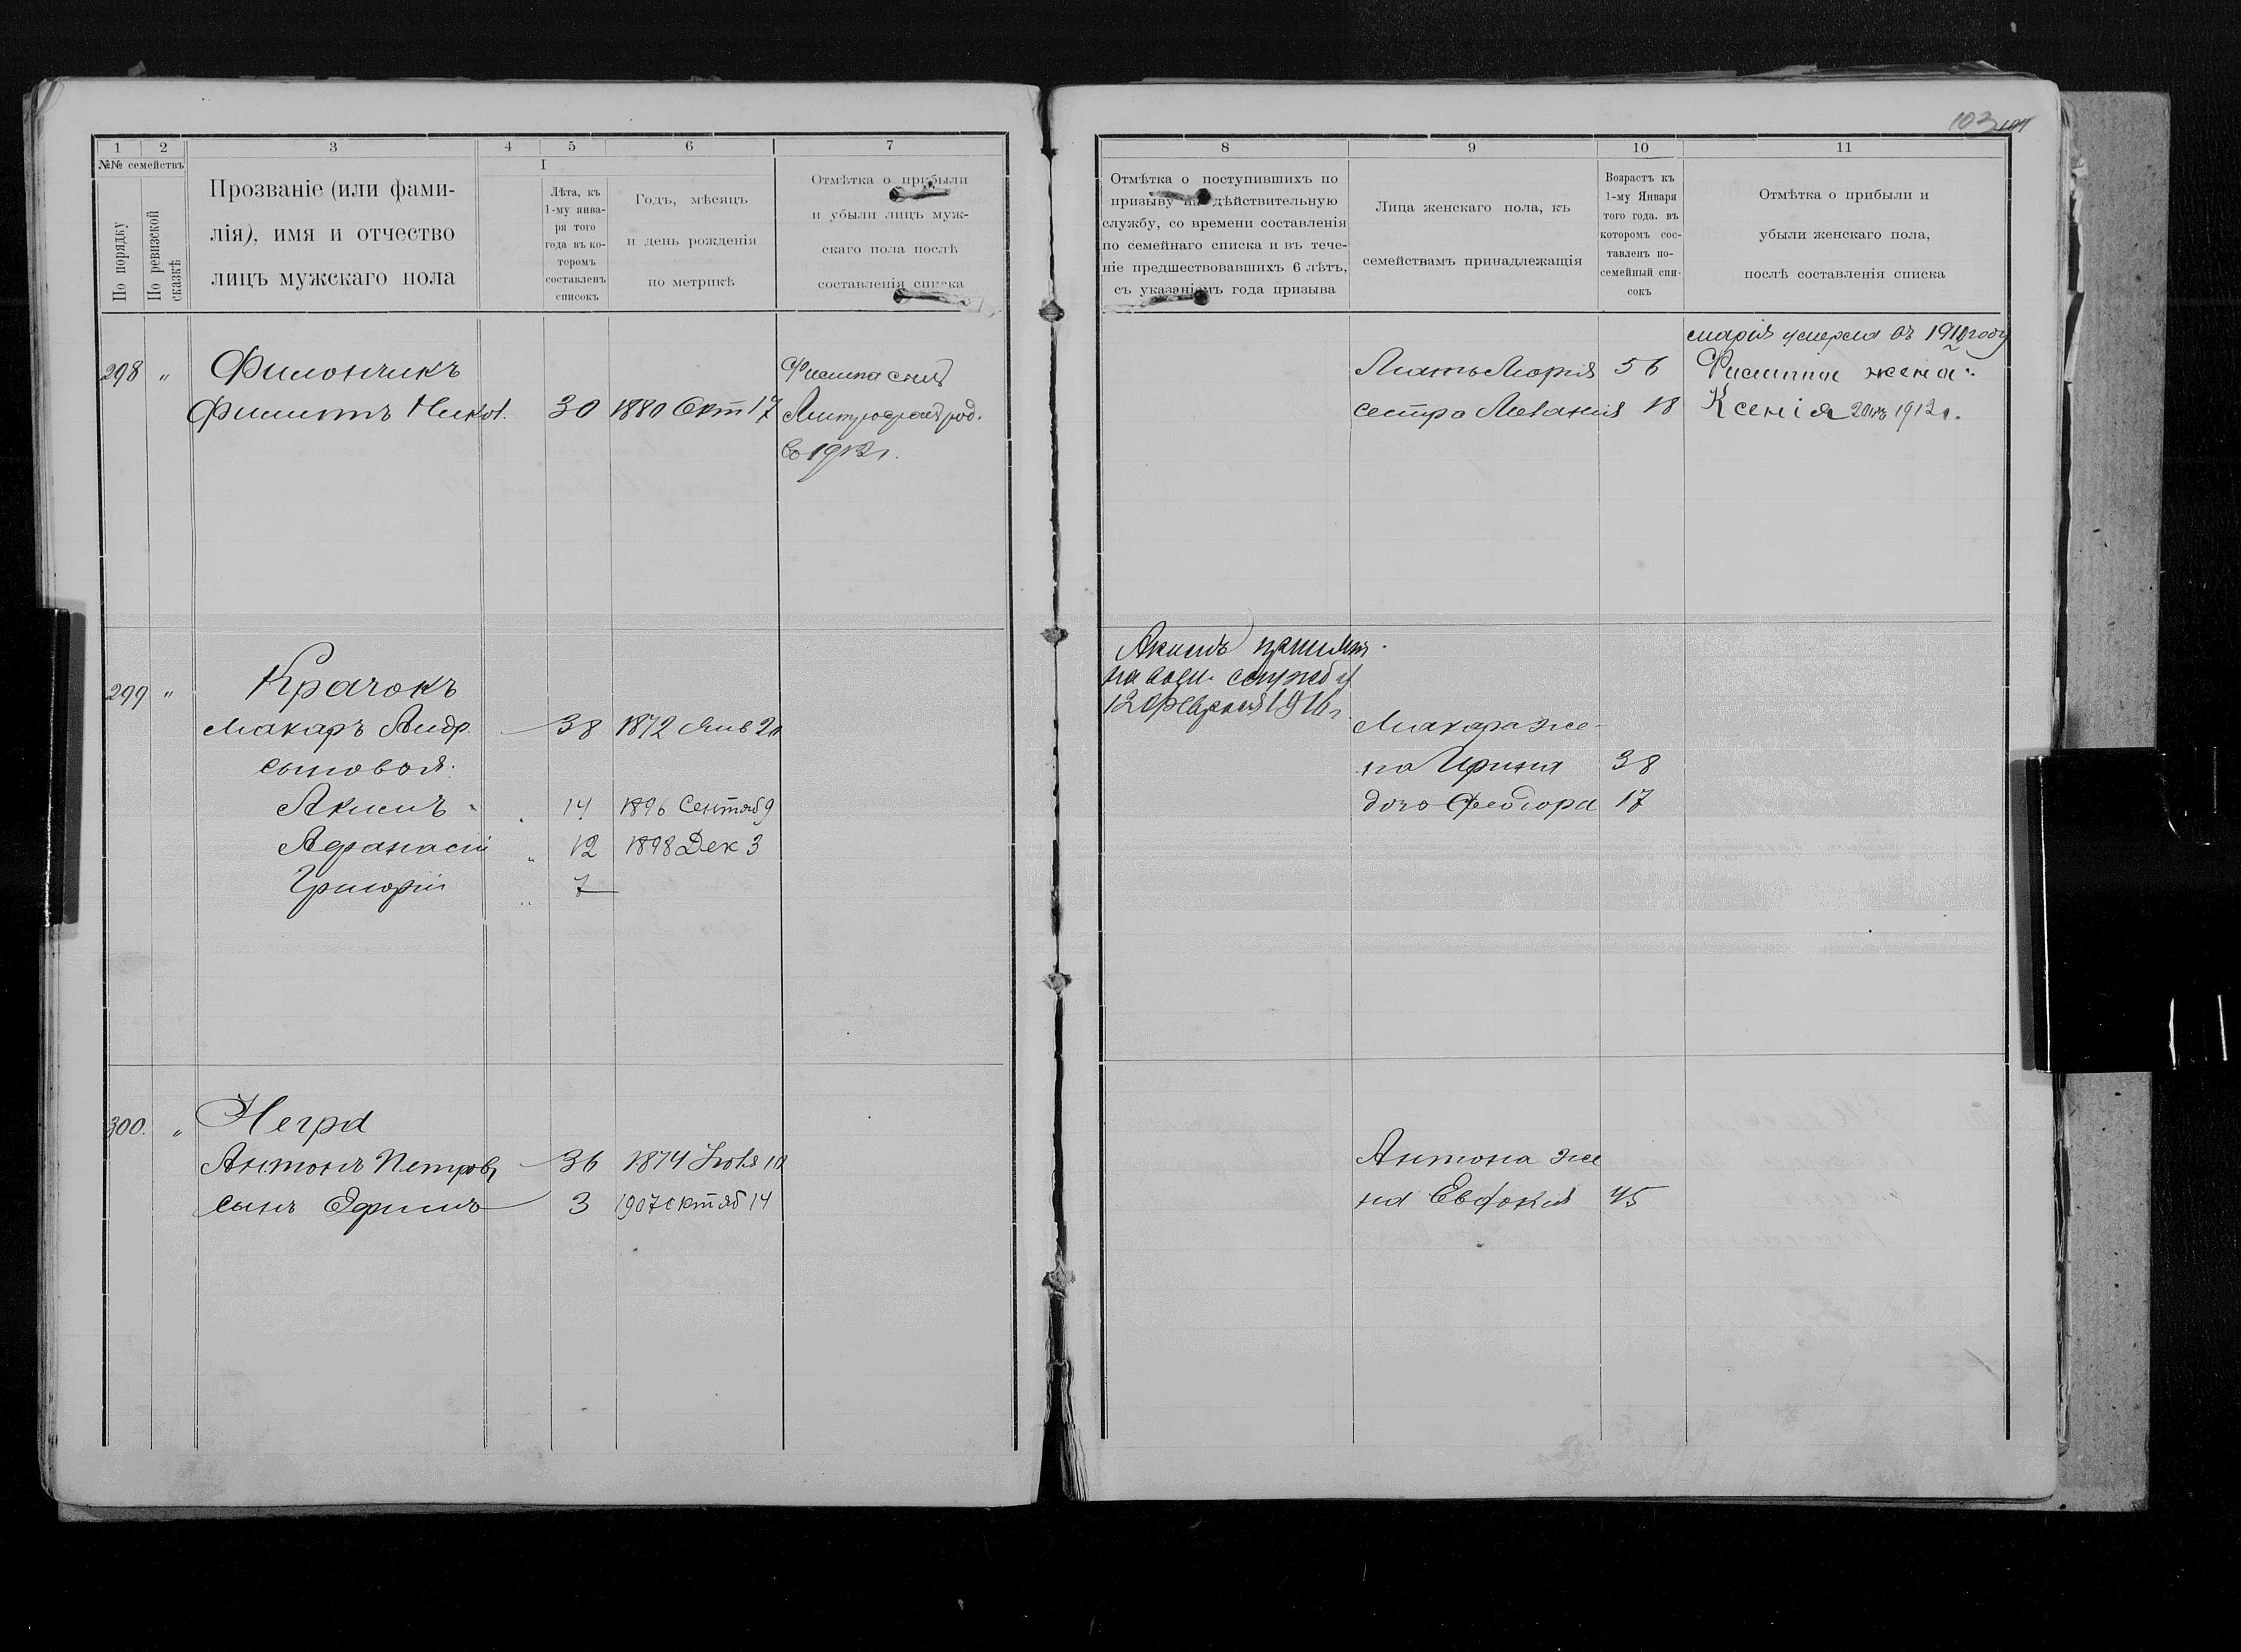 1 2 3 4 5 6 7
№№ семействъ
I
По порядку
По ревизской сказкѣ
Прозваніе (или фами-
лія), имя и отчество
лицъ мужскаго пола
Лѣта, къ
1-му янва-
ря того
года въ ко-
торомъ
составленъ
списокъ
Годъ, мѣсяцъ
и день рожденія
по метрикѣ
Отмѣтка о прибыли
и убыли лицъ муж-
скаго пола послѣ
составленія списка
298 " Филончикъ
Филиппъ Никол. 30 1880 Окт 17
Филипа сынъ
род.
въ 1912 г.
299 " Крачокъ
Макаръ Андр. 38 1872 Янв 20
сыновья:
Акимъ " 14 1896 Сентяб 9
Афанасій " 12 1898 Дек 3
Григорій " 7
300. " Негра
Антонъ Петров 36 1874 Іюля 10
сынъ Ефимъ 3 1907 октяб 14
103
8 9 10 11
Отмѣтка о поступившихъ по
призыву на дѣйствительную
службу, со времени составленія
по семейнаго списка и въ тече-
ніе предшествовавшихъ 6 лѣтъ,
съ указаніемъ года призыва
Лица женскаго пола, къ
семействамъ принадлежащія
Возрастъ къ
1-му Января
того года. въ
которомъ сос-
тавленъ по-
семейный спи-
сокъ
Отмѣтка о прибыли и
убыли женскаго пола,
послѣ составленія списка
Марія умерла въ 1910 году
Мать Марія 56 Филиппа жена:
сестра Меланія 18 Ксенія 20 лѣтъ 1912 г.
Акимъ принятъ
на воен. службу
12 Февраля 1916 г.
Макара же-
на Ирина 38
дочь Феодора 17
Антона же
на Евдокія 45